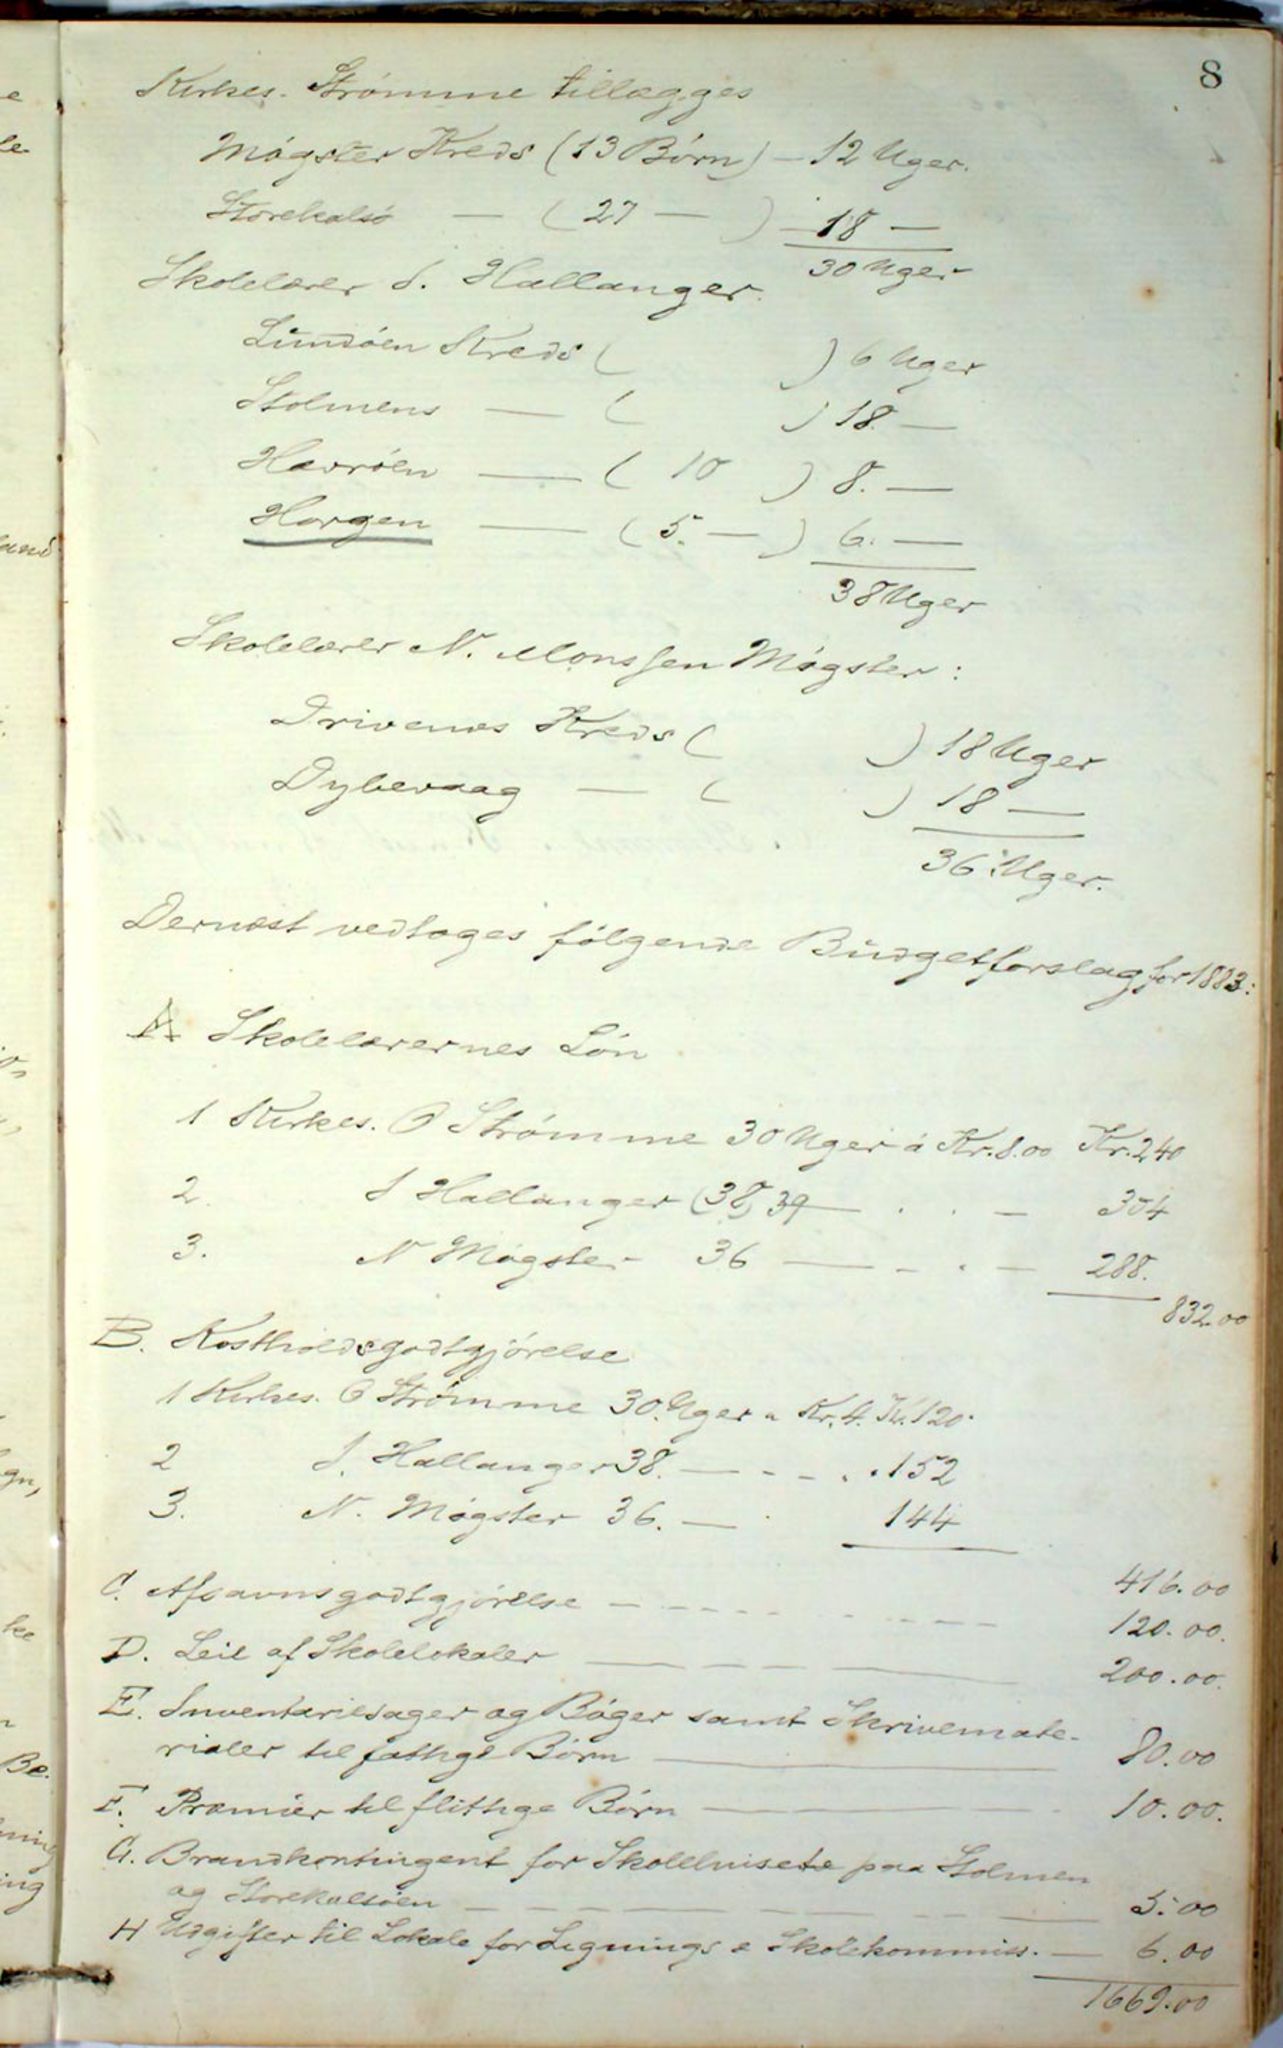 8
Kirkes. Strømme tillægges
Møgster Kreds (13 Børn) – 12 Uger.
Storekalsø — (27 — ) – 18 —
30 Uger
Skolelærer S. Hallanger.
Lundøen Kreds ( ) 6 Uger
Stolmens — ( ) 18. —
Havrøen — ( 10 ) 8. —
Horgen — ( 5. — ) 6. —
38 Uger
Skolelærer N. Monssen Møgster :
Drivenes Kreds ( ) 18 Uger
Dybevaag — ( ) 18 —
36 Uger.
Dernæst vedtoges følgende Budgetforslag for 1883:
A Skolelærernes Løn
1 Kirkes. O Strømme 30 Uger á Kr. 8.00 Kr. 240
2. S Hallanger (38) 39 — . . — 304
3. N Møgster 36 — – . — 288.
832.00
B. Kostholdsgodtgjørelse
1 Kirkes. O Strømme 30. Uger a Kr. 4. Kr. 120.
2 S. Hallanger 38. — - - . . 152
3. N. Møgster 36. — . 144
416.00
C. Afsavnsgodtgjørelse — — — — 120.00.
D. Leie af Skolelokaler — — — — 200.00.
E. Inventariesager og Bøger samt Skrivemate-
rialer til fattige Børn — 80.00
F. Præmier til flittige Børn — 10.00.
G. Brandkontingent for Skolehusete paa Stolmen
og Storekalsøen — — — — 5.00
H Udgifter til Lokale for Lignings & Skolekommiss. — 6.00
1669.00